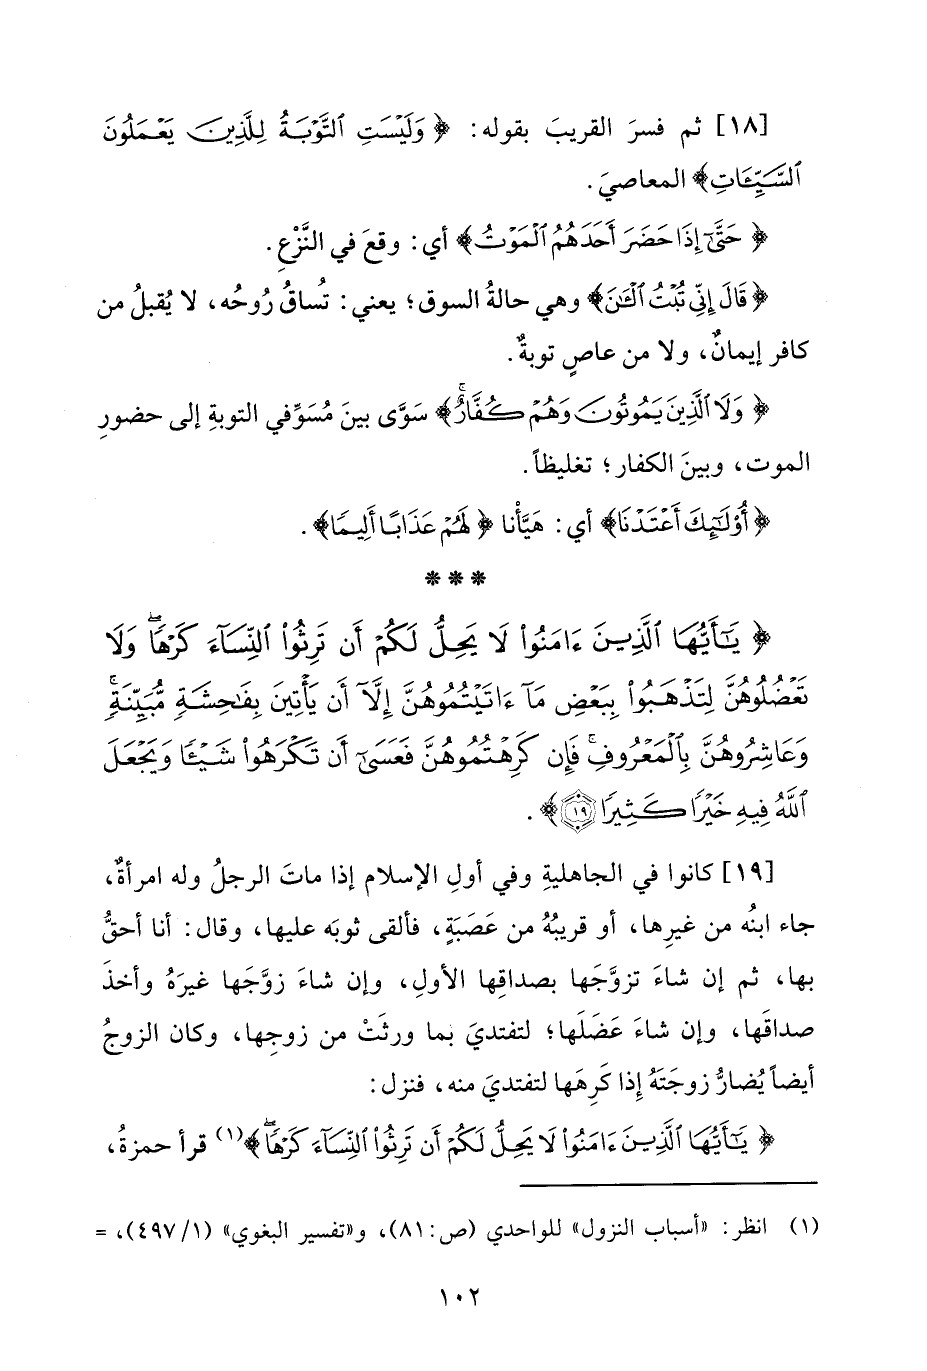 [١٨] ثم فسرَ القريبَ بقوله: ﴿ وَلَيْسَتِ ٱلتَّوْبَةُ لِلَّذِينَ يَعْمَلُونَ
ٱلسَّيِّـَٔاتِ﴾ المعاصيَ.
﴿ حَتَّىٰٓ إِذَا حَضَرَ أَحَدَهُمُ ٱلْمَوْتُ﴾ أي: وقعَ في النَّزْعِ.
﴿ قَالَ إِنِّى تُبْتُ ٱلْـَٰٔنَ﴾ وهي حالةُ السوق؛ يعني: تُساقُ رُوحُه، لا يُقبلُ من
كافر إيمانٌ، ولا من عاصٍ توبةٌ.
﴿ وَلَا ٱلَّذِينَ يَمُوتُونَ وَهُمْ كُفَّارٌۚ﴾ سَوَّى بينَ مُسَوِّفي التوبةِ إلى حضورِ
الموت، وبينَ الكفار؛ تغليظاً.
﴿ أُوْلَـٰٓئِكَ أَعْتَدْنَا﴾ أي: هَيَّأْنا ﴿ لَهُمْ عَذَابًا أَلِيمًا﴾.
* * *
﴿ يَـٰٓأَيُّهَا ٱلَّذِينَ ءَامَنُوا۟ لَا يَحِلُّ لَكُمْ أَن تَرِثُوا۟ ٱلنِّسَآءَ كَرْهًاۖ وَلَا
تَعْضُلُوهُنَّ لِتَذْهَبُوا۟ بِبَعْضِ مَآ ءَاتَيْتُمُوهُنَّ إِلَّآ أَن يَأْتِينَ بِفَـٰحِشَةٍ مُّبَيِّنَةٍۚ
وَعَاشِرُوهُنَّ بِٱلْمَعْرُوفِۚ فَإِن كَرِهْتُمُوهُنَّ فَعَسَىٰٓ أَن تَكْرَهُوا۟ شَيْـًٔا وَيَجْعَلَ
ٱللَّهُ فِيهِ خَيْرًا كَثِيرًا ۝١٩﴾.
[١٩] كانوا في الجاهليةِ وفي أولِ الإسلام إذا ماتَ الرجلُ وله امرأةٌ،
جاء ابنُه من غيرِها، أو قريبُهُ من عَصَبَةٍ، فألقى ثوبَه عليها، وقال: أنا أحقُّ
بها، ثم إن شاءَ تزوَّجَها بصداقِها الأولِ، وإن شاءَ زوَّجَها غيرَهُ وأخذَ
صداقَها، وإن شاءَ عَضَلَها؛ لتفتديَ بما ورثَتْ من زوجِها، وكان الزوجُ
أيضاً يُضارُّ زوجَتَهُ إذا كَرِهَها لتفتديَ منه، فنزل:
﴿ يَـٰٓأَيُّهَا ٱلَّذِينَ ءَامَنُوا۟ لَا يَحِلُّ لَكُمْ أَن تَرِثُوا۟ ٱلنِّسَآءَ كَرْهًاۖ﴾(١) قرأ حمزةُ،
(١) انظر: «أسباب النزول» للواحدي (ص: ٨١)، و«تفسير البغوي» (١/ ٤٩٧)، =
١٠٢